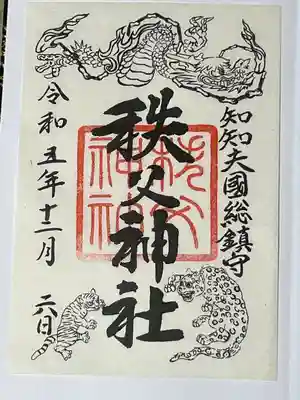 知知夫國総鎮守
秩父神社
秩父
神社
令和五年十二月六日